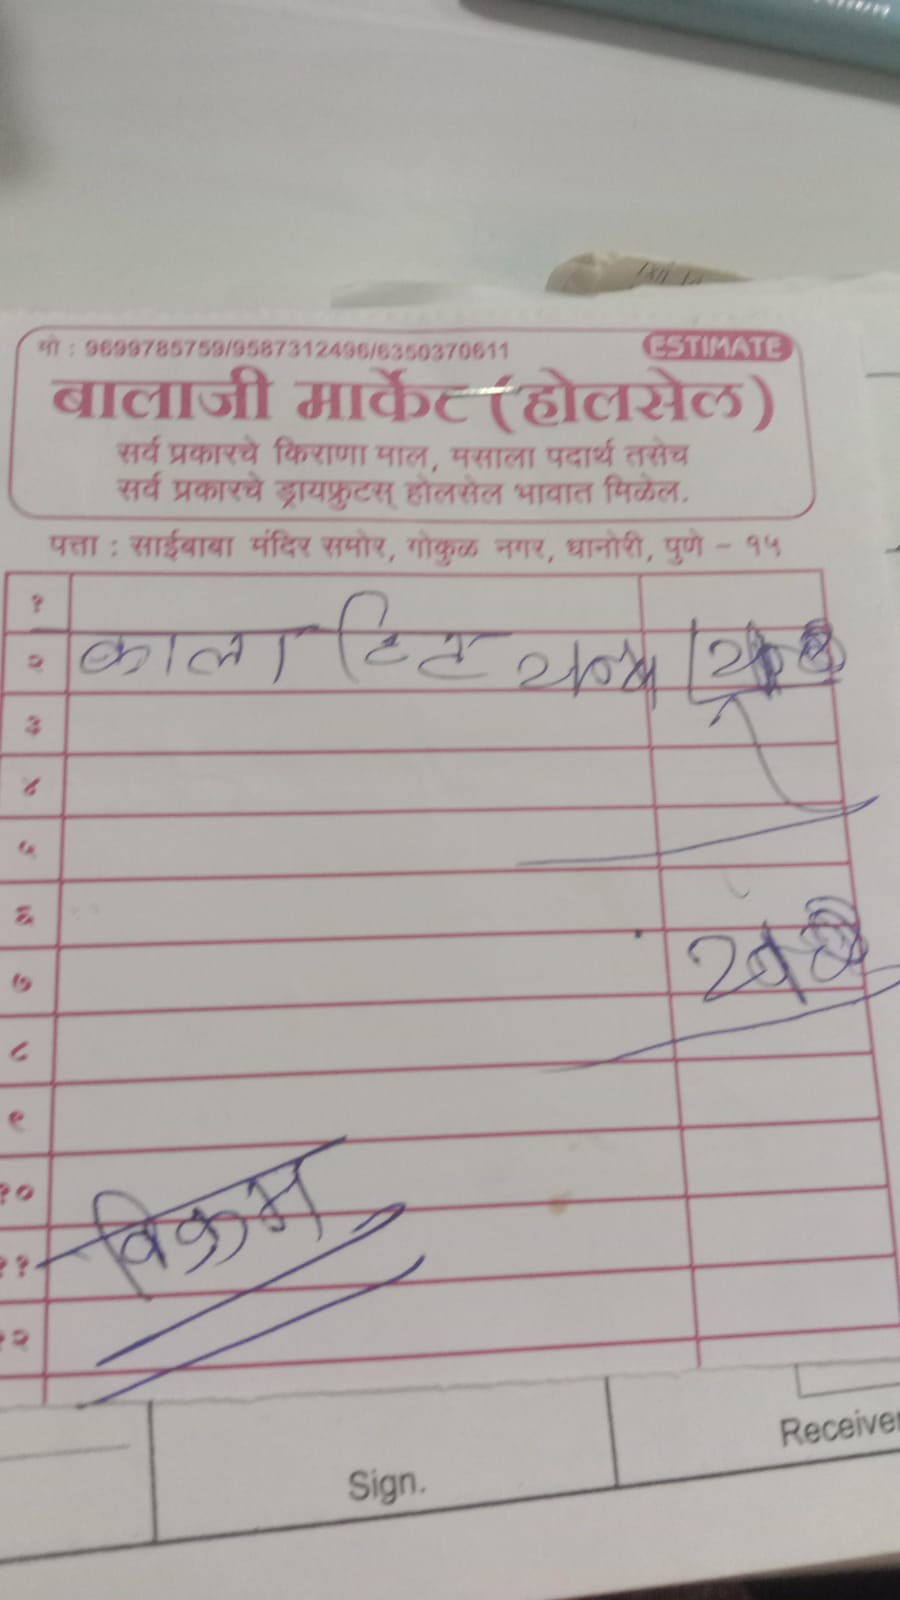 मो : 9699785759/9587312496/6350370611
ESTIMATE
बालाजी मार्केट (होलसेल)
सर्व प्रकारचे किराणा माल, मसाला पदार्थ तसेच
सर्व प्रकारचे ड्रायफ्रुटस् होलसेल भावात मिळेल.
पत्ता : साईबाबा मंदिर समोर, गोकुळ नगर, धानोरी, पुणे - १५
१
२ काला हिट
३
४
५
६
७
८
९
१०
११ विक्रम
१२
Sign.
Receiver